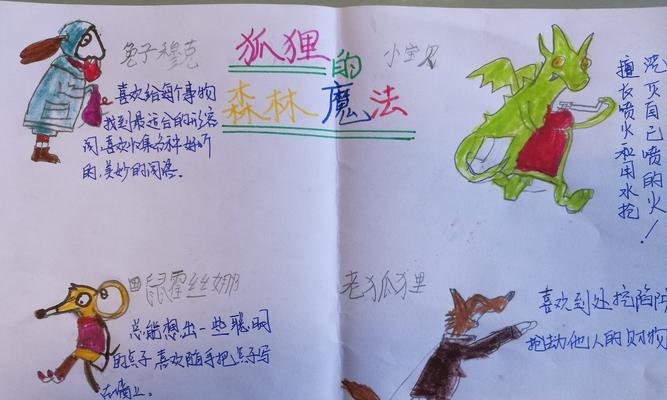 狐狸的
森林魔法
兔子穆克
喜欢给每个事物
找到最适合的形容
词,喜欢收集各种好听
的,美妙的词语。
小宝贝
擅长喷火和用水枪
浇灭自己喷的火!
田鼠霍丝丝娜
总能想出一些聪明
的点子喜欢随手把点子写
在墙上。
老狐狸
喜欢到处挖陷阱
抢劫他人的财物